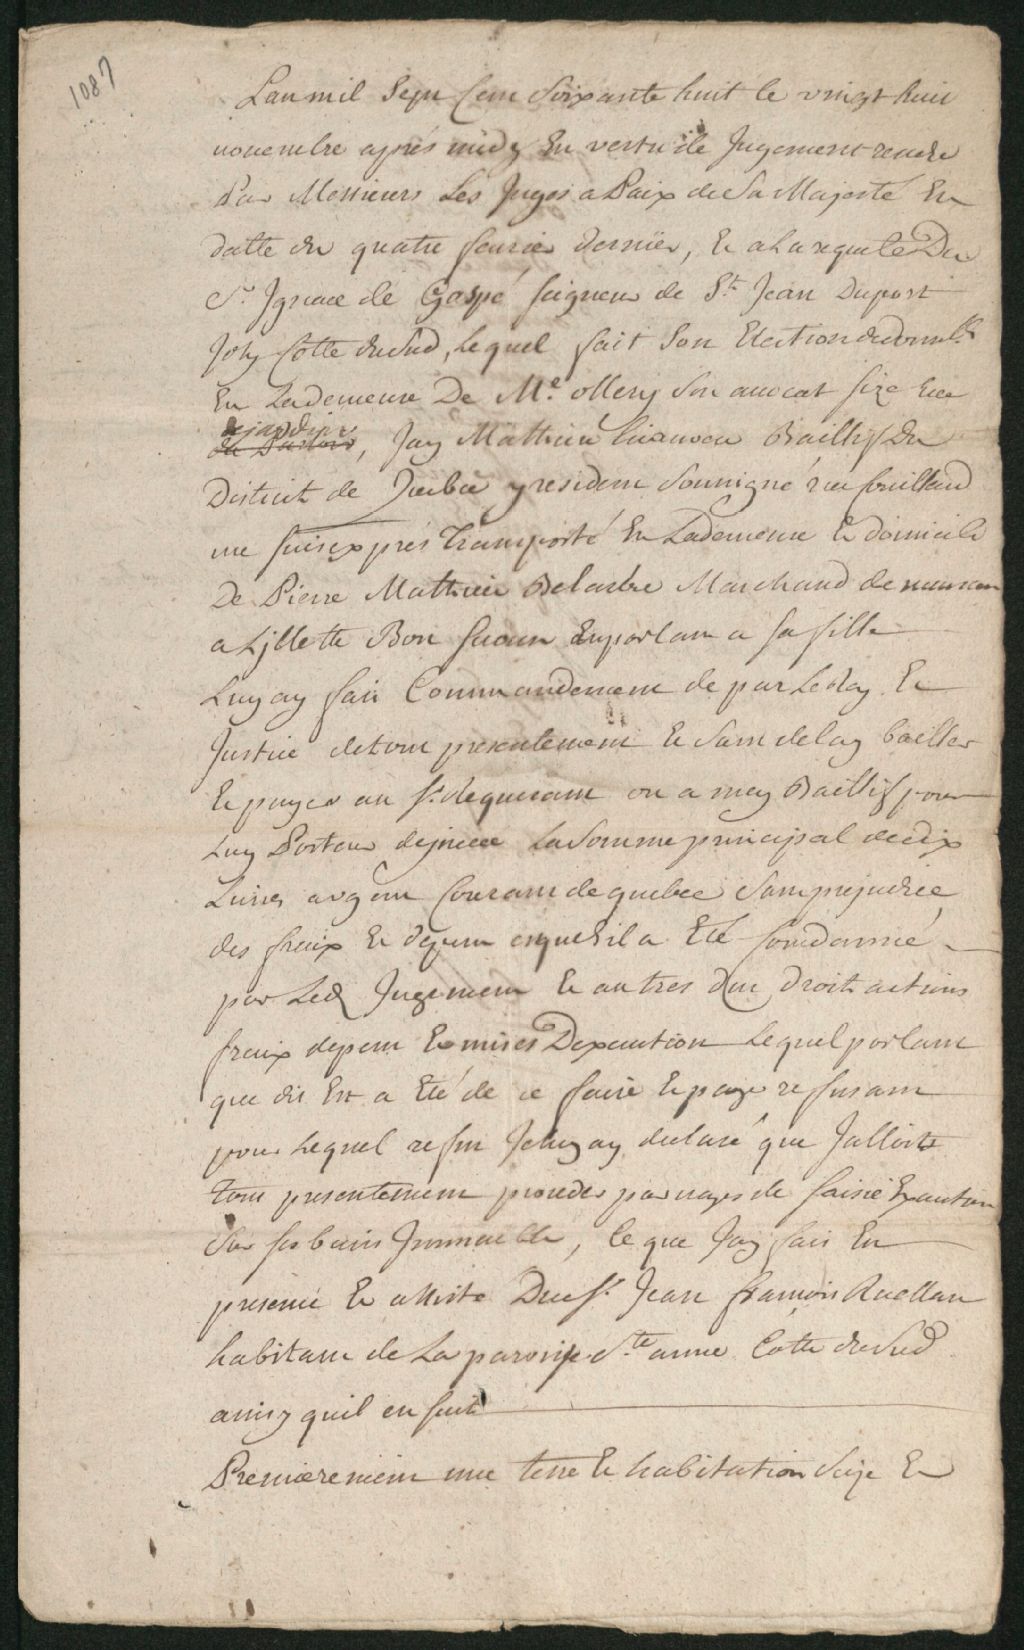 1087
Lan mil Sept Cent Soixante huit le vingt huit
novembre aprés midy En vertu de Jugement rendu
Par Messieurs Les Juges a Paix de Sa Majesté En
datte du quatre feurier dernier, Et a La requete Du
Sr. Ignace de Gaspé seigneur de St. Jean Duport
Joly Cotte du Sud, Lequel fait Son Election de domlle
En La demeure De Me. ollery Son auocat size rue
des jardins
, Jay Mathieu Bailly Du
District de Quebec y resident Soussigné rue
me suis exprés Transporté En La demeure Et domicile
De Pierre Mathieu Delarbre Marchand
a Lillette Bon secour En parlant a sa fille
Luy ay fait Commandement de par Le Roy Et
Justice de tout presentement Et Sans delay bailler
Et payer au Sr. Requerant ou a moy Baillif pour
Luy Porteur de piece La Somme principal de dix
Liures argent Courant de quebec Sans prejudice
des fraix Et depens auquel il a Eté Condamné
par Led Jugement Et autres du droit actions
fraix depens Et mises Dexecution Lequel parlant
que dit Est a Eté de ce faire Et paye refusant
pour Lequel refus Je luy ay declaré que Jallois
tout presentement proceder par voyes de saisie Execution
Sur ses biens Immeuble, Ce que Jay fait En
presence Et assisté Du Sr. Jean françois Ruellan
habitant de La paroise Ste anne Cotte du Sud
ainsy quil en suit
Premierement une terre Et habitation Size En